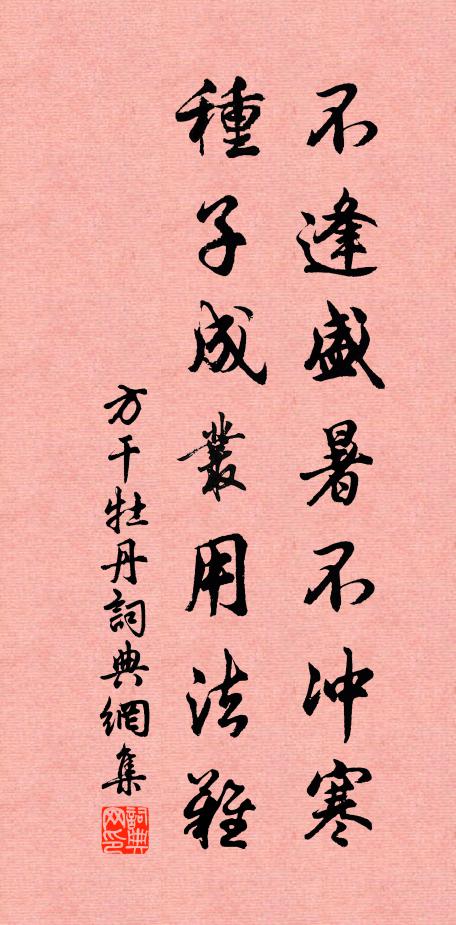 不逢盛暑不冲寒
種子成叢用法難
方干牡丹詞典網集
詞典网印